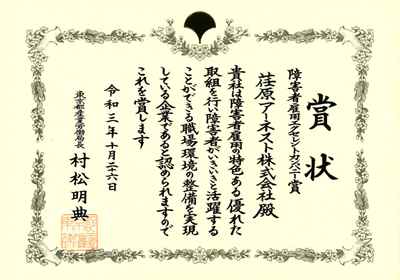 賞状
障害者雇用エクセレントカンパニー賞
荏原アーネスト株式会社殿
貴社は障害者雇用の特色ある優れた
取組を行い障害者がいきいきと活躍する
ことができる職場環境の整備を実現
している企業であると認められますので
これを賞します
令和三年十月二十六日
東京都産業労働局長
村松明典